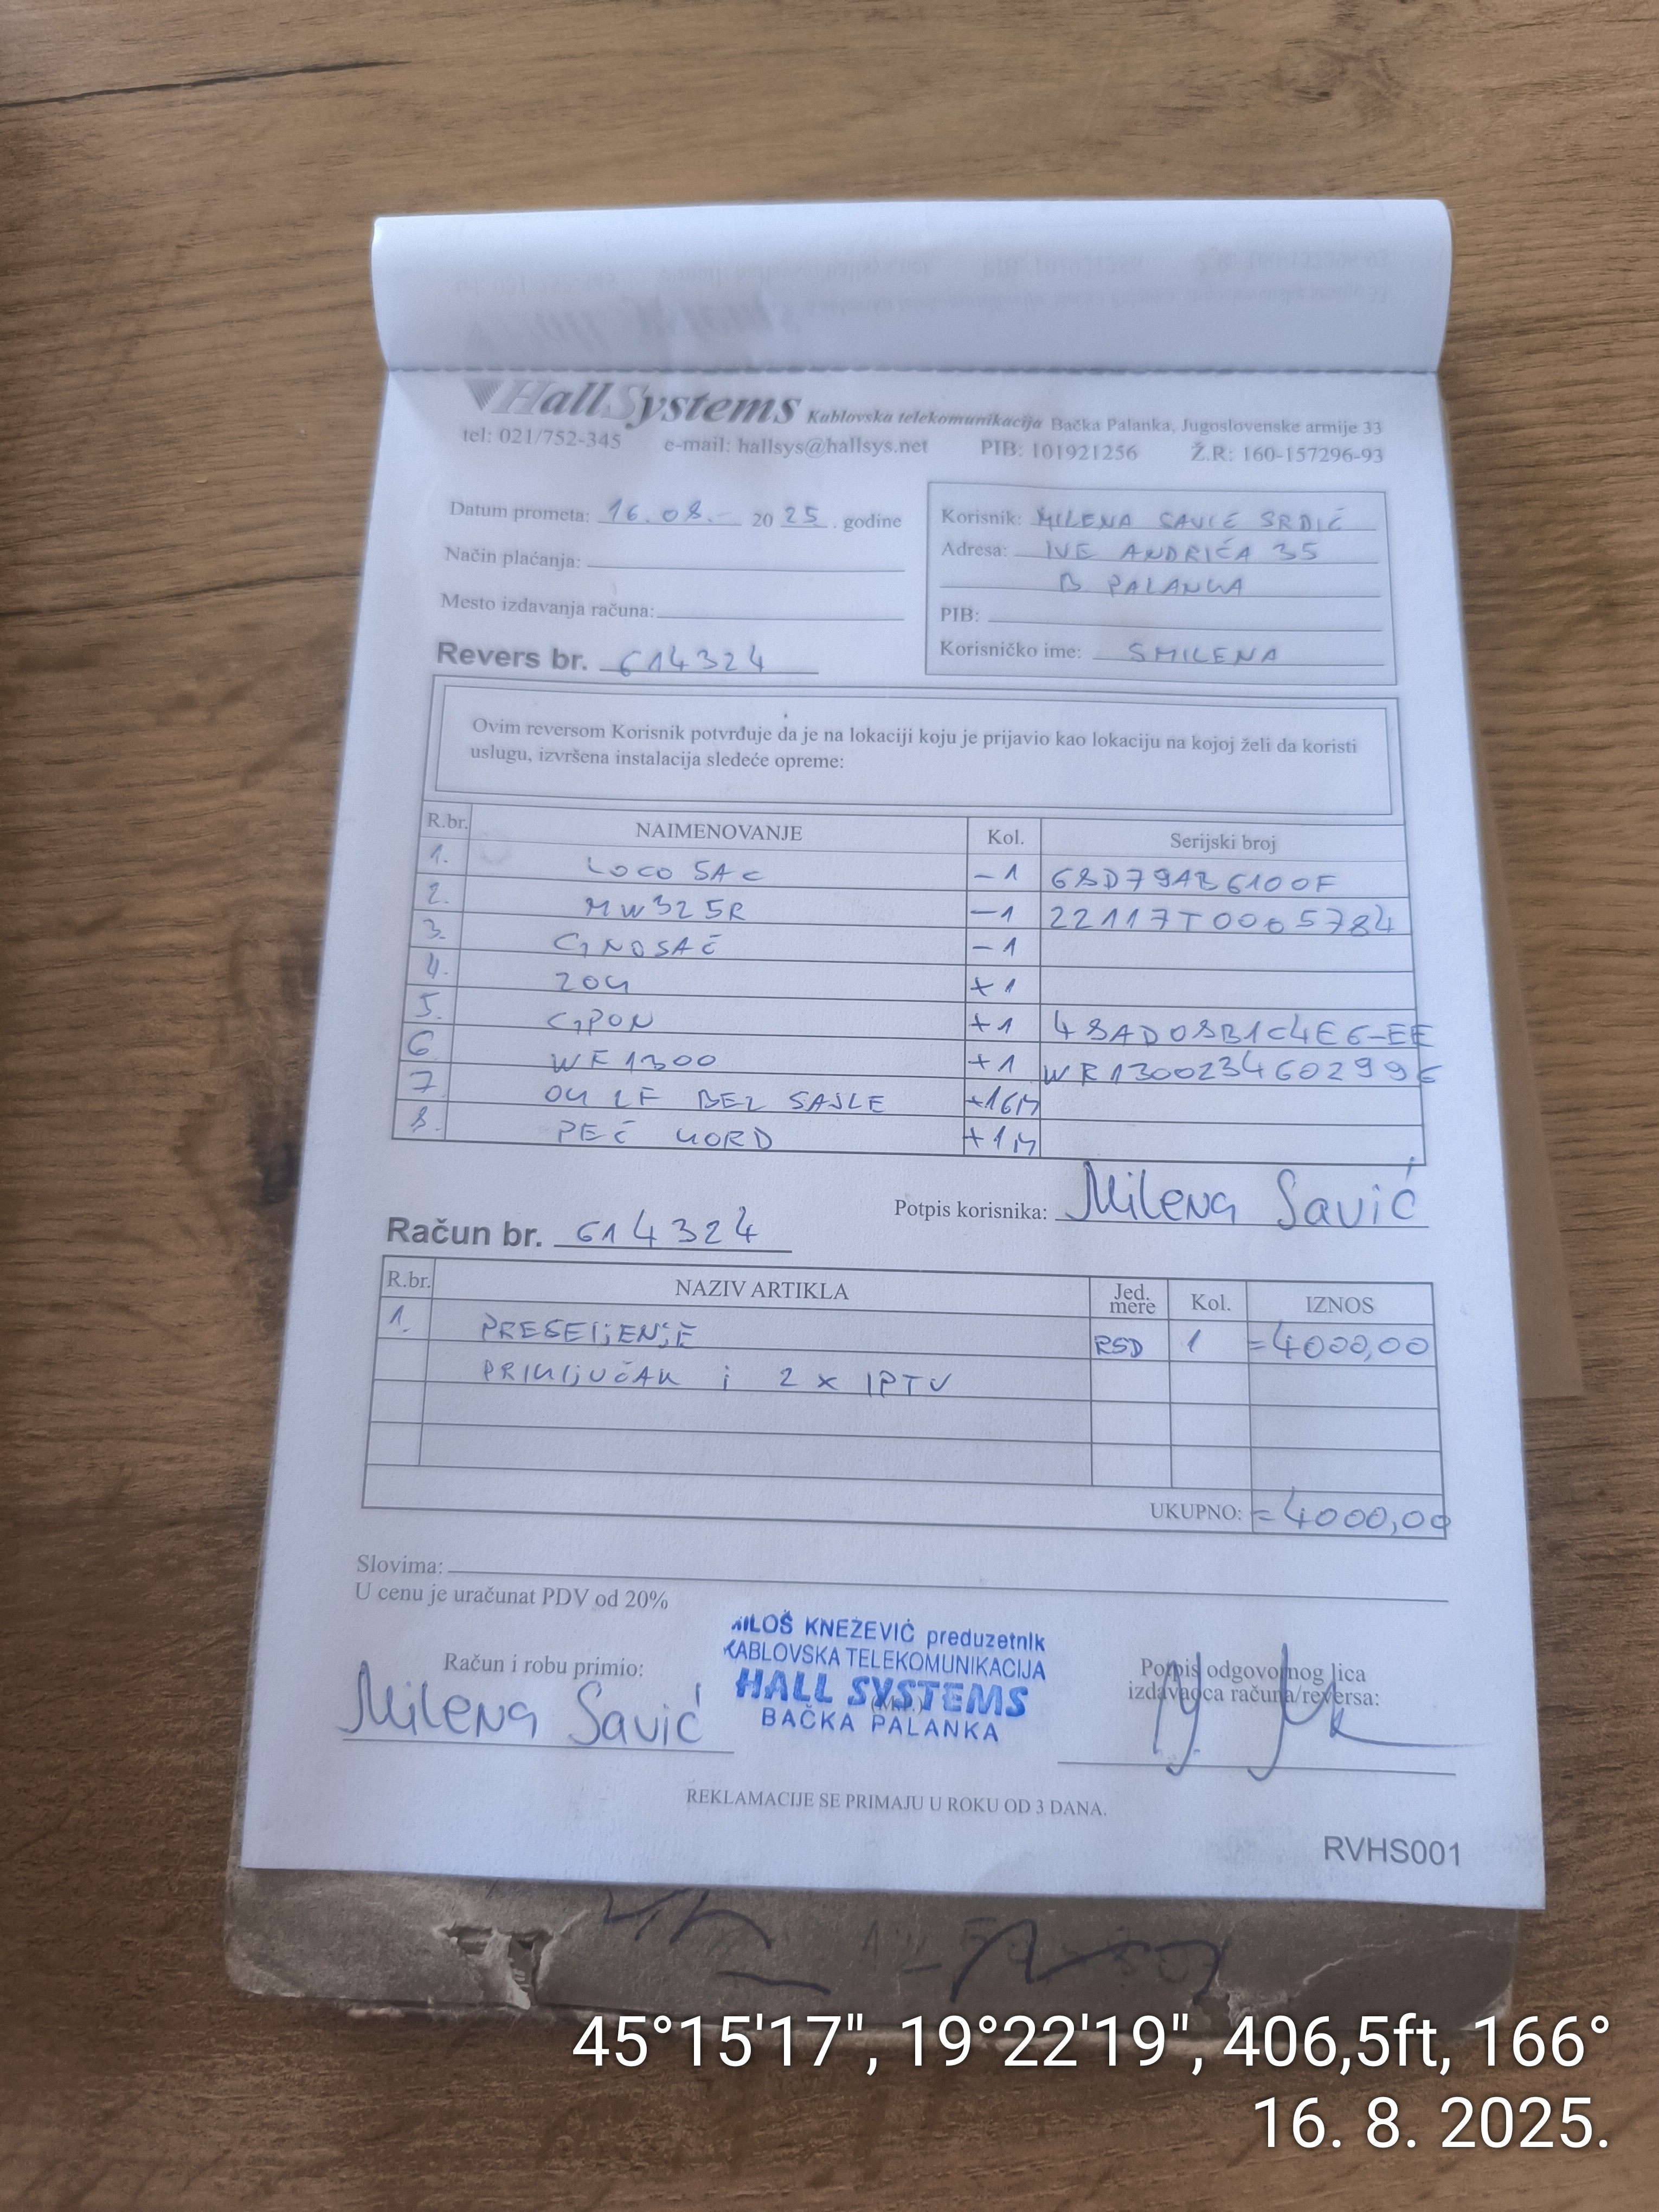 HallSystems Kablovska telekomunikacija Bačka Palanka, Jugoslovenske armije 33
tel: 021/752-345 e-mail: hallsys@hallsys.net PIB: 101921256 Ž.R: 160-157296-93
Datum prometa: 16.08.- 2025. godine
Način plaćanja:
Mesto izdavanja računa:
Revers br. 614324
Korisnik: MILENA SAVIĆ SRDIĆ
Adresa: IVE ANDRIĆA 35
B PALANKA
PIB:
Korisničko ime: SMILENA
Ovim reversom Korisnik potvrđuje da je na lokaciji koju je prijavio kao lokaciju na kojoj želi da koristi
uslugu, izvršena instalacija sledeće opreme:
R.br. NAIMENOVANJE Kol. Serijski broj
1. LOCO 5AC -1 68D79AB6100F
2. MW325R -1 22117T0005784
3. GNOSAČ -1
4. ZOK +1
5. GPON +1 48AD08B1C4E6-EE
6 WF1300 +1
7 OK 2F BEZ SAJLE +16M
8. PEČ KORD +1M
Potpis korisnika: Milena Savić
Račun br. 614324
R.br. NAZIV ARTIKLA Jed. mere Kol. IZNOS
1. PRESELJENJE RSD 1 =4000,00
PRIKLJUČAK i 2 x IPTV
UKUPNO: =4000,00
Slovima:
U cenu je uračunat PDV od 20%
Račun i robu primio:
Milena Savić
MILOŠ KNEŽEVIĆ preduzetnik
KABLOVSKA TELEKOMUNIKACIJA
HALL SYSTEMS
(M.P.)
BAČKA PALANKA
Potpis odgovornog lica
izdavaoca računa/reversa:
REKLAMACIJE SE PRIMAJU U ROKU OD 3 DANA.
RVHS001
45°15'17", 19°22'19", 406,5ft, 166°
16. 8. 2025.